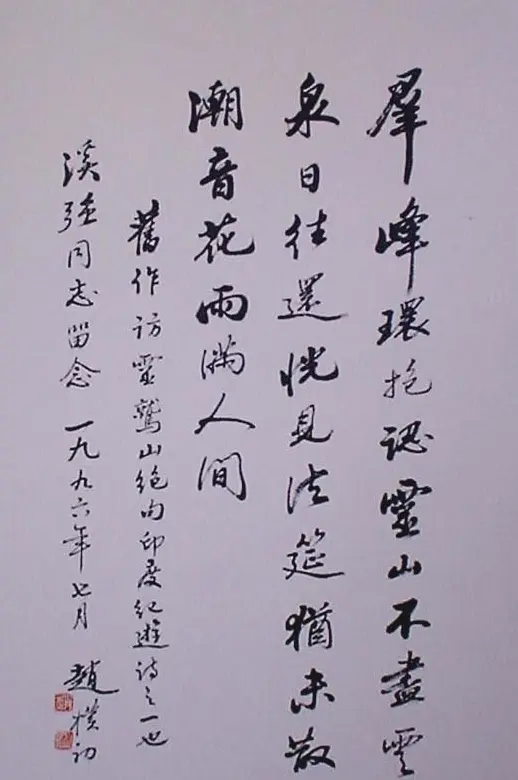 羣峰環抱認靈山不盡雲
泉日往還恍見法筵猶未散
潮音花雨滿人間
舊作訪靈鷲山絶句印度紀遊詩之一也
漢強同志留念 一九九六年七月 趙樸初